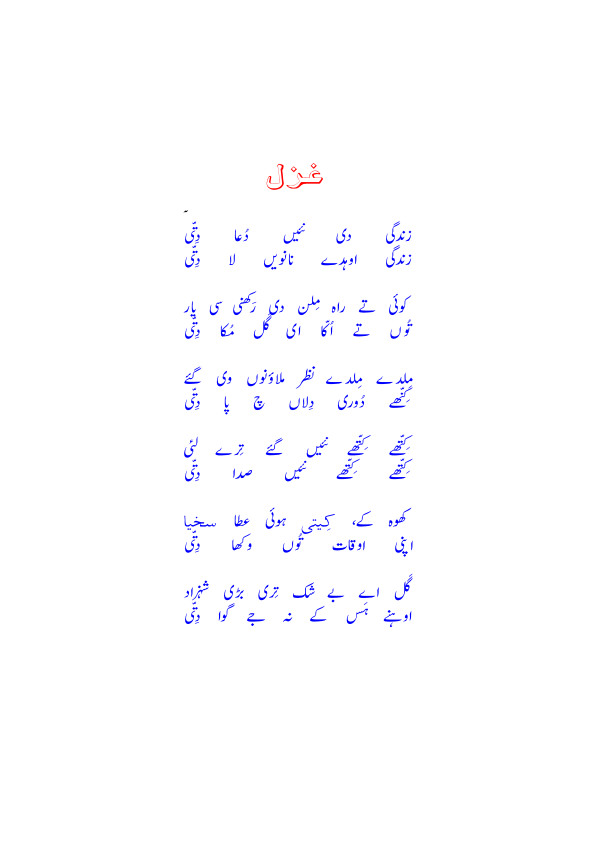 غزل
۔
زندگی دی نئیں دُعا دِتّی
زندگی اوہدے نانویں لا دِتّی
کوئی تے راہ مِلن دی رَکھنی سی یار
تُوں تے اُکّا ای گَل مُکا دِتّی
مِلدے مِلدے نظر ملاؤنوں وی گئے
کِنّھے دُوری دِلاں چ پا دِتّی
کِتّھے کِتّھے نئیں گئے تِرے لئی
کِتّھے کِتّھے نئیں صدا دِتّی
کھوہ کے، کِیتی ہوئی عطا سخیا
اپنی اوقات تُوں وکھا دِتّی
گَل اے بے شک تِری بڑی شہزاد
اوہنے ہَس کے نہ جے گوا دِتّی